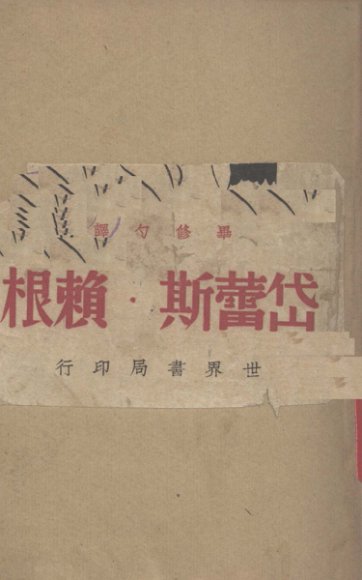 畢修勺譯
岱蕾斯·賴根
世界書局印行